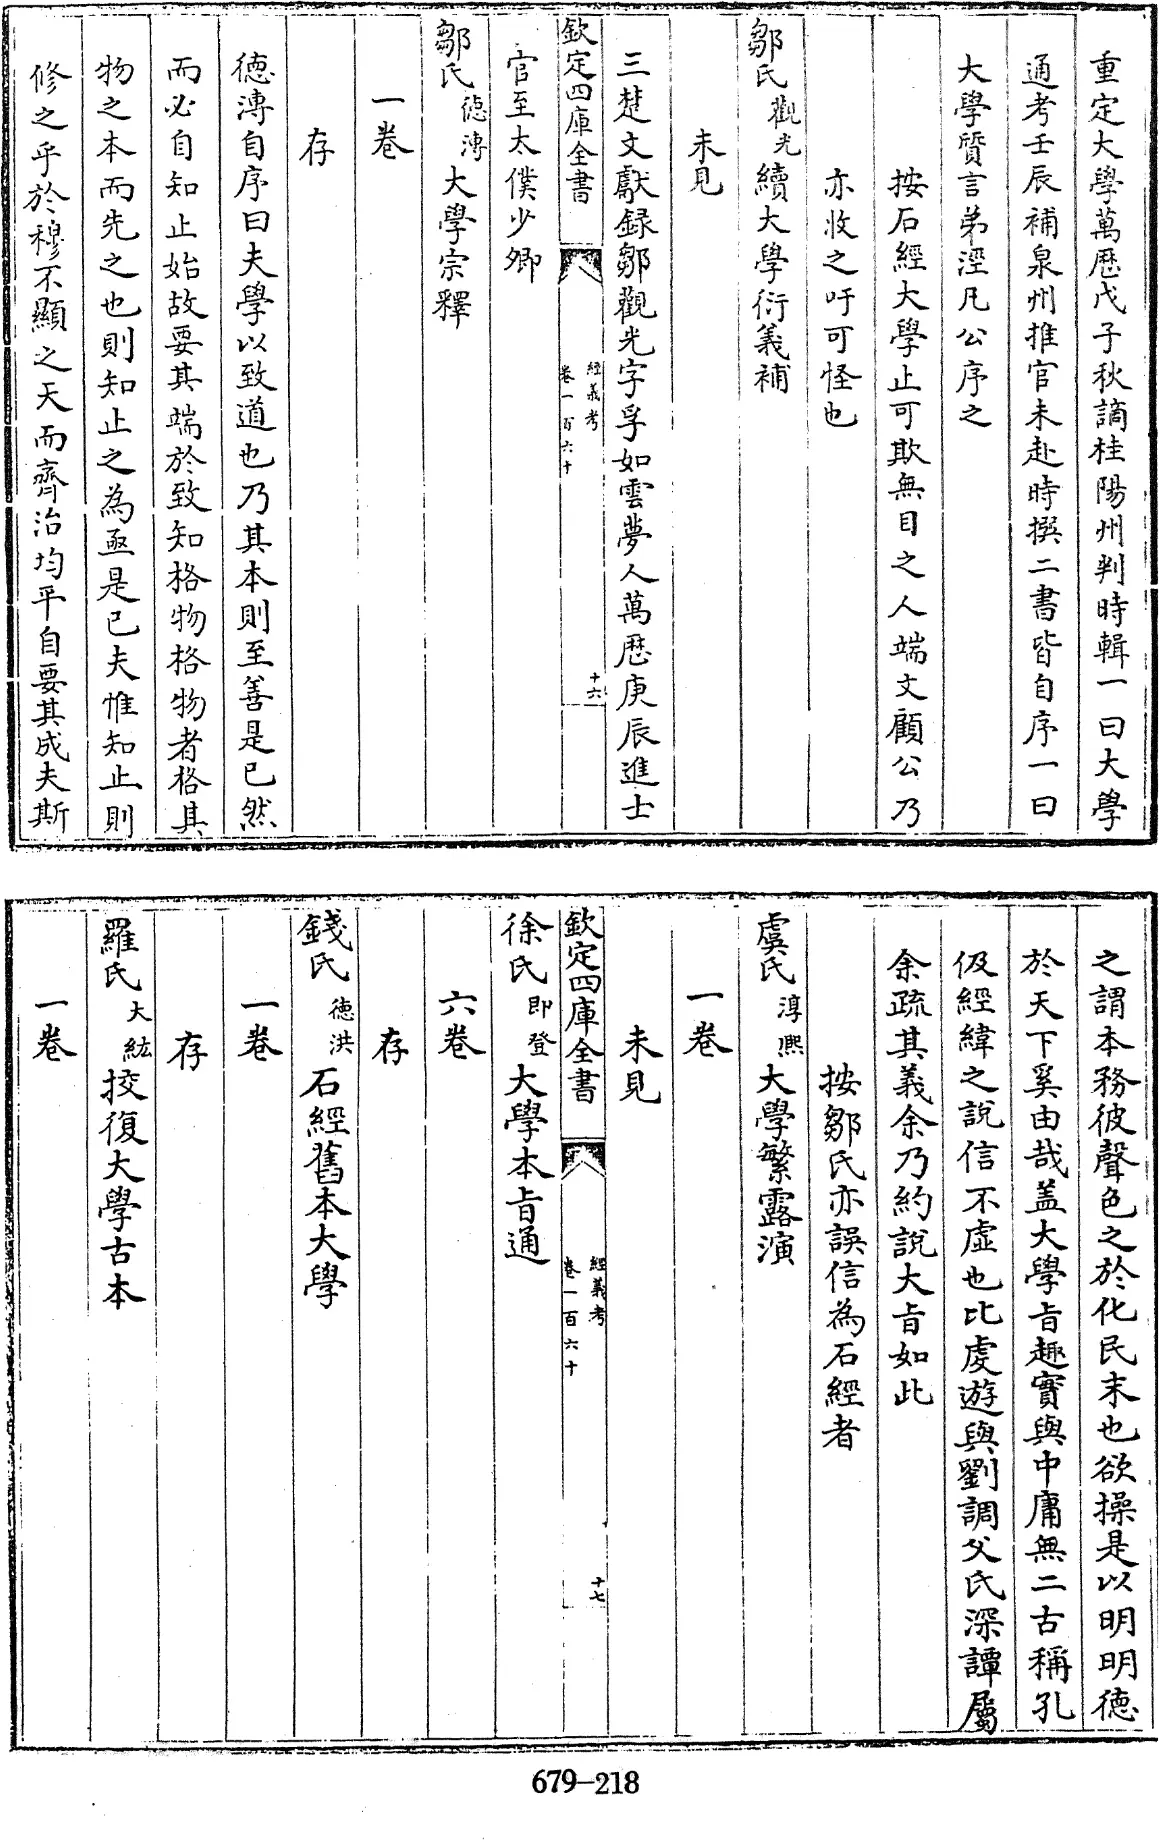 重定大學萬歴戊子秋謫桂陽州判時輯一曰大學
通考壬辰補泉州推官未赴時撰二書皆自序一曰
大學質言弟涇凡公序之
按石經大學止可欺無目之人端文顧公乃
亦收之吁可怪也
鄒氏觀光續大學衍義補
未見
三楚文獻録鄒觀光字孚如雲夢人萬歴庚辰進士
欽定四庫全書
經義考
卷一百六十
十六
官至太僕少卿
鄒氏德溥大學宗釋
一卷
存
德溥自序曰夫學以致道也乃其本則至善是已然
而必自知止始故要其端於致知格物格物者格其
物之本而先之也則知止之為亟是已夫惟知止則
修之乎於穆不顯之天而齊治均平自要其成夫斯
之謂本務彼聲色之於化民末也欲操是以明明德
於天下奚由哉盖大學㫖趣實與中庸無二古稱孔
伋經緯之說信不虚也比虔遊與劉調父氏深譚屬
余疏其義余乃約說大㫖如此
按鄒氏亦誤信為石經者
虞氏淳熙大學繁露演
一卷
未見
欽定四庫全書
經義考
卷一百六十
十七
徐氏即登大學本㫖通
六卷
存
錢氏德洪石經舊本大學
一卷
存
羅氏大紘挍復大學古本
一卷
679-218